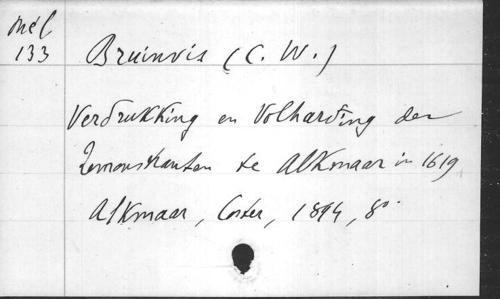 Mél
133
Bruinvis (C. W.)
Verdrukking en Volharding der
Remonstranten te Alkmaar in 1619
Alkmaar, Coster, 1894, 8°.